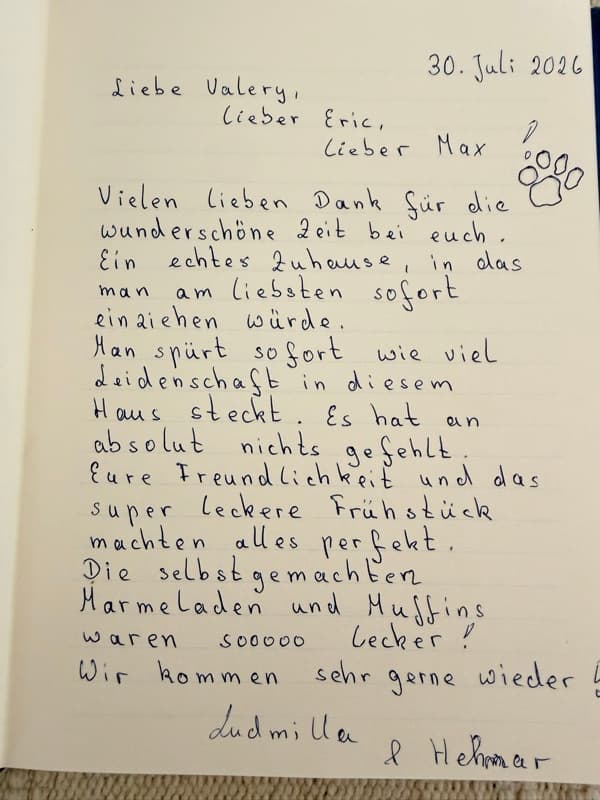 30. Juli 2026
Liebe Valery,
lieber Eric,
lieber Max !
Vielen lieben Dank für die
wunderschöne Zeit bei euch.
Ein echtes Zuhause, in das
man am liebsten sofort
einziehen würde.
Man spürt sofort wie viel
Leidenschaft in diesem
Haus steckt. Es hat an
absolut nichts gefehlt.
Eure Freundlichkeit und das
super leckere Frühstück
machten alles perfekt.
Die selbstgemachten
Marmeladen und Muffins
waren sooooo lecker!
Wir kommen sehr gerne wieder!
Ludmilla
& Hehmar